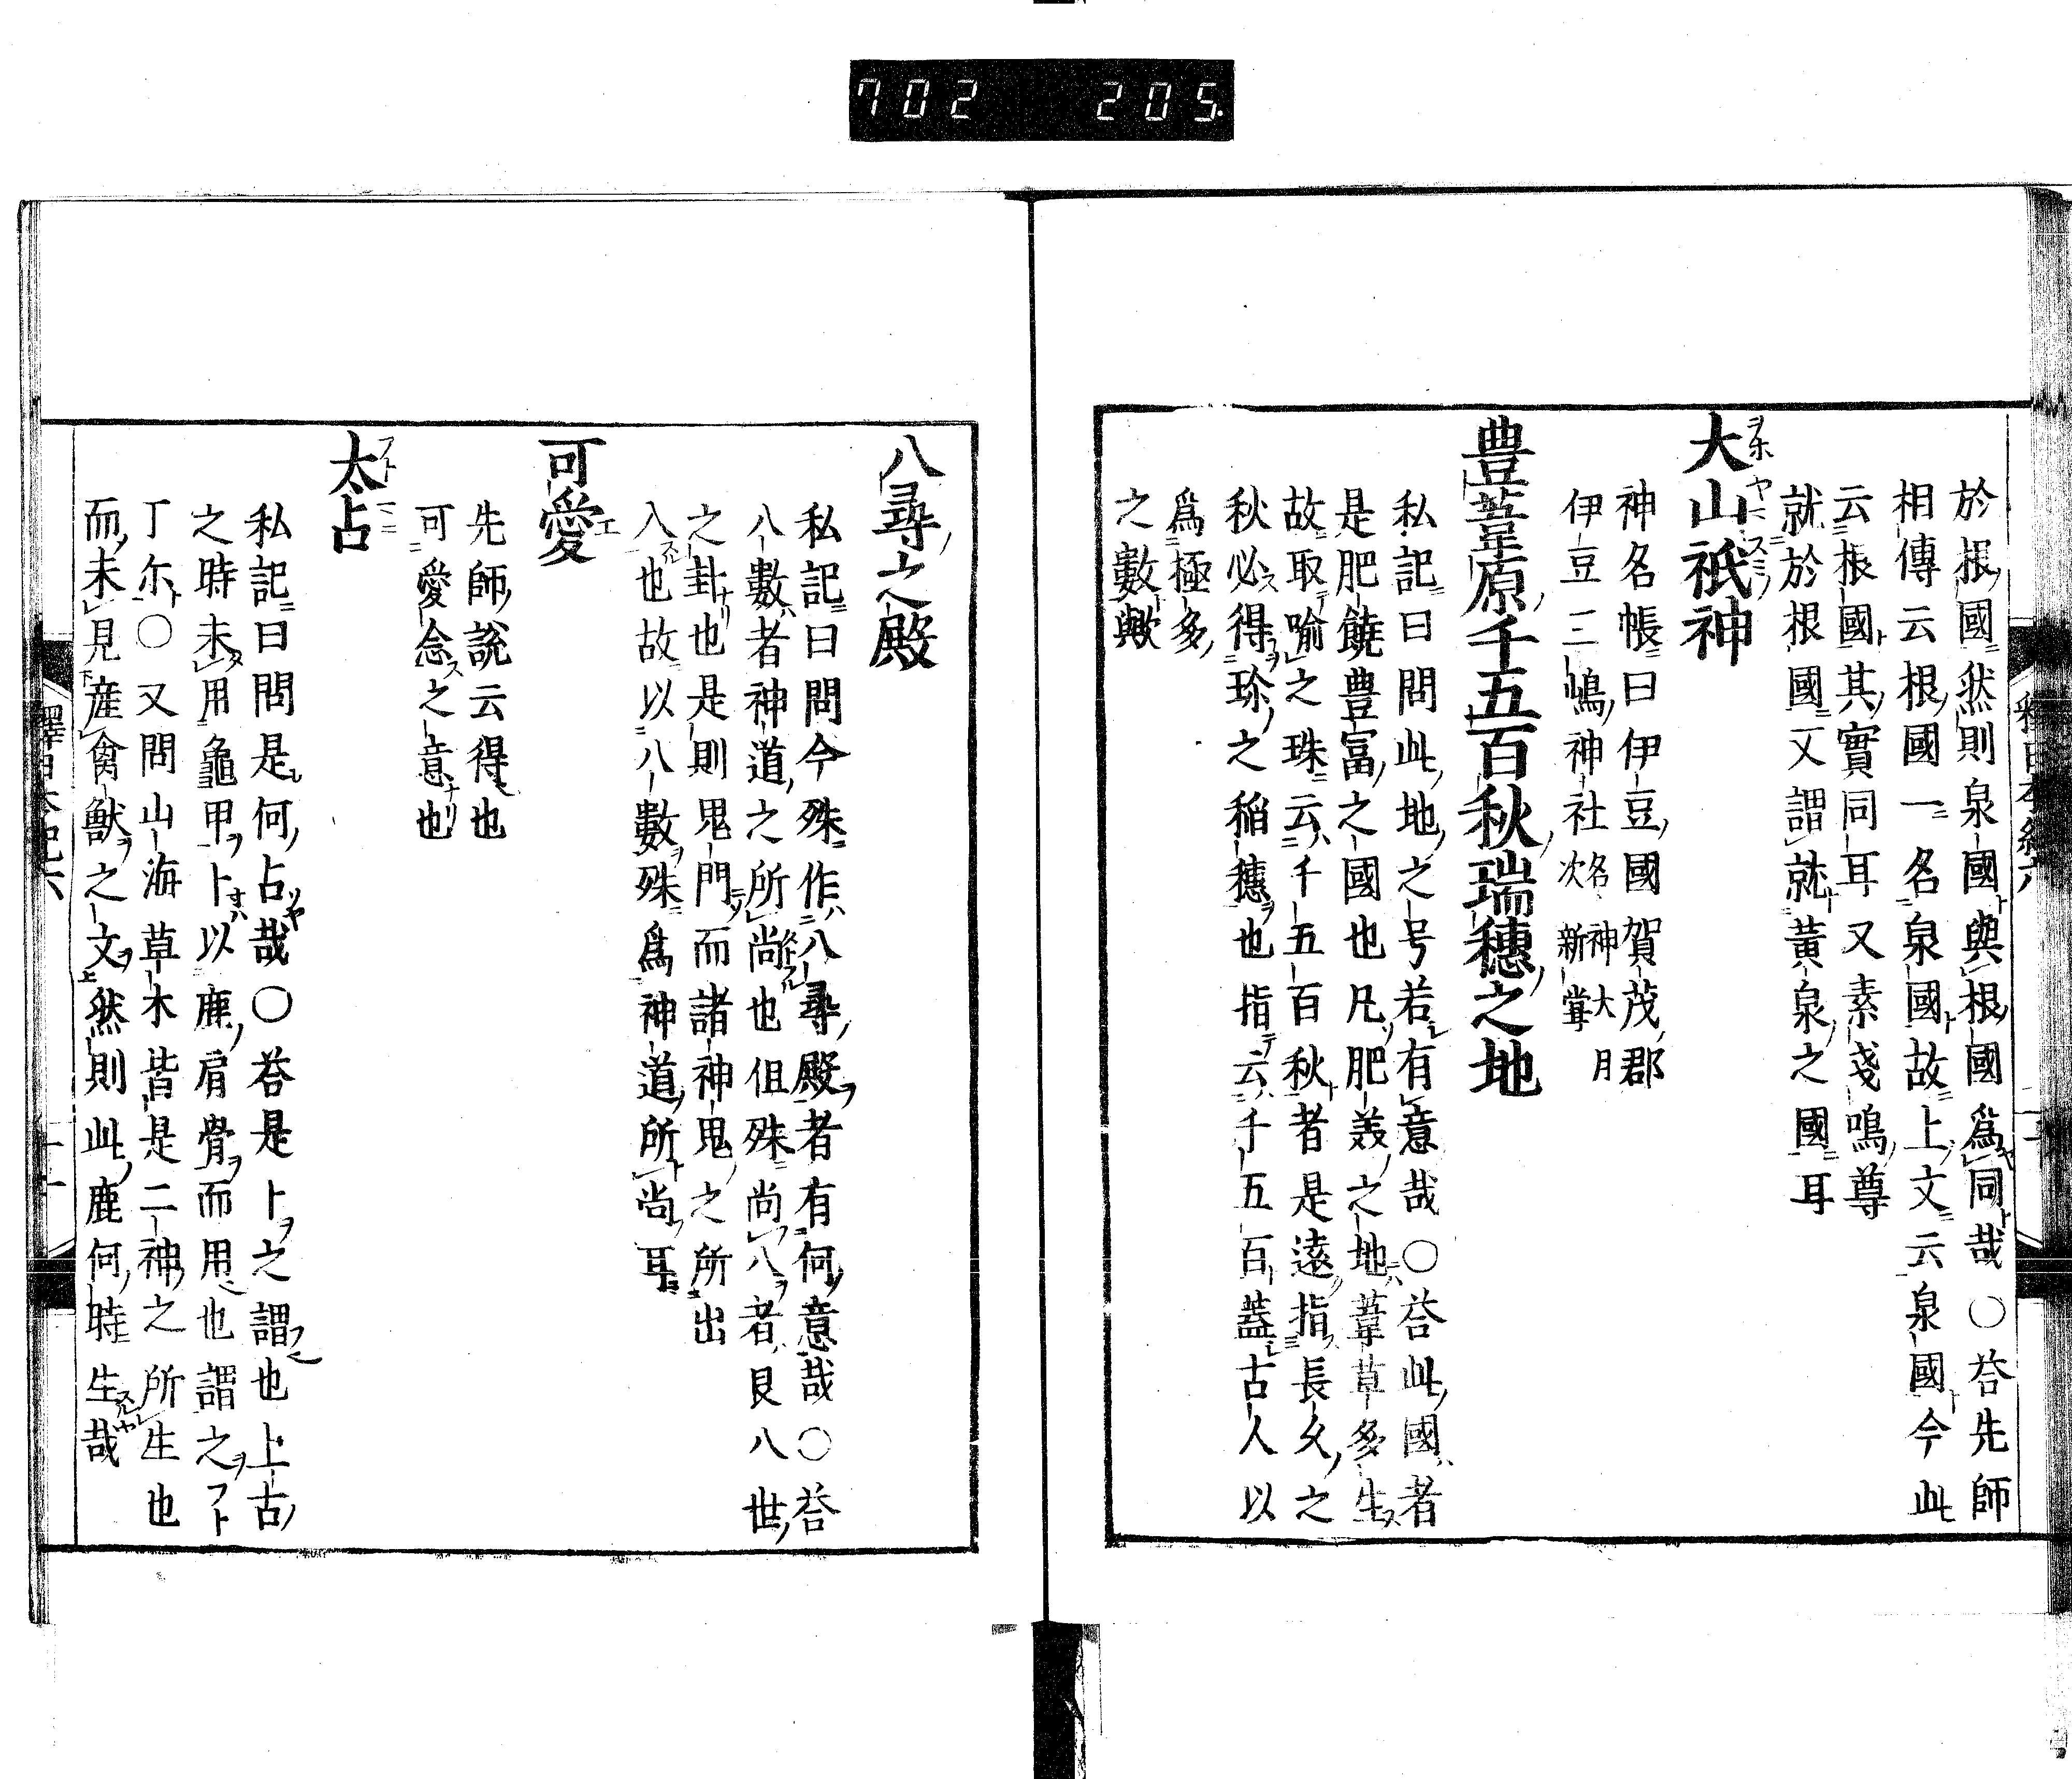 702 205.
於根國然則泉國與根國爲同哉〇荅先師
相傳云根國一名泉國故上文云泉國今此
云根國其實同耳又素戔嗚尊
就於根國又謂就黃泉之國耳
大山祇神
神名帳曰伊豆國賀茂郡
伊豆三嶋神社名神大月次新甞
豊葦原千五百秋瑞穗之地
私記曰問此地之号若有意哉〇荅此國者
是肥饒豊富之國也凡肥美之地葦草多生
故取喻之珠云千五百秋者是遠指長久之
秋必得珍之稻穗也指云千五百蓋古人以
爲極多
之數歟
八尋之殿
私記曰問今殊作八尋殿者有何意哉〇荅
八數者神道之所尚也但殊尚八者艮八世
之卦也是則鬼門而諸神鬼之所出
入也故以八數殊爲神道所尚耳
可愛
先師說云得也
可愛念之意也
太占
私記曰問是何占哉〇荅是卜之謂也上古
之時未用龜甲卜以鹿肩骨而用也謂之フト
丁尓〇又問山海草木皆是二神之所生也
而未見産禽獸之文然則此鹿何時生哉
釋日本紀六